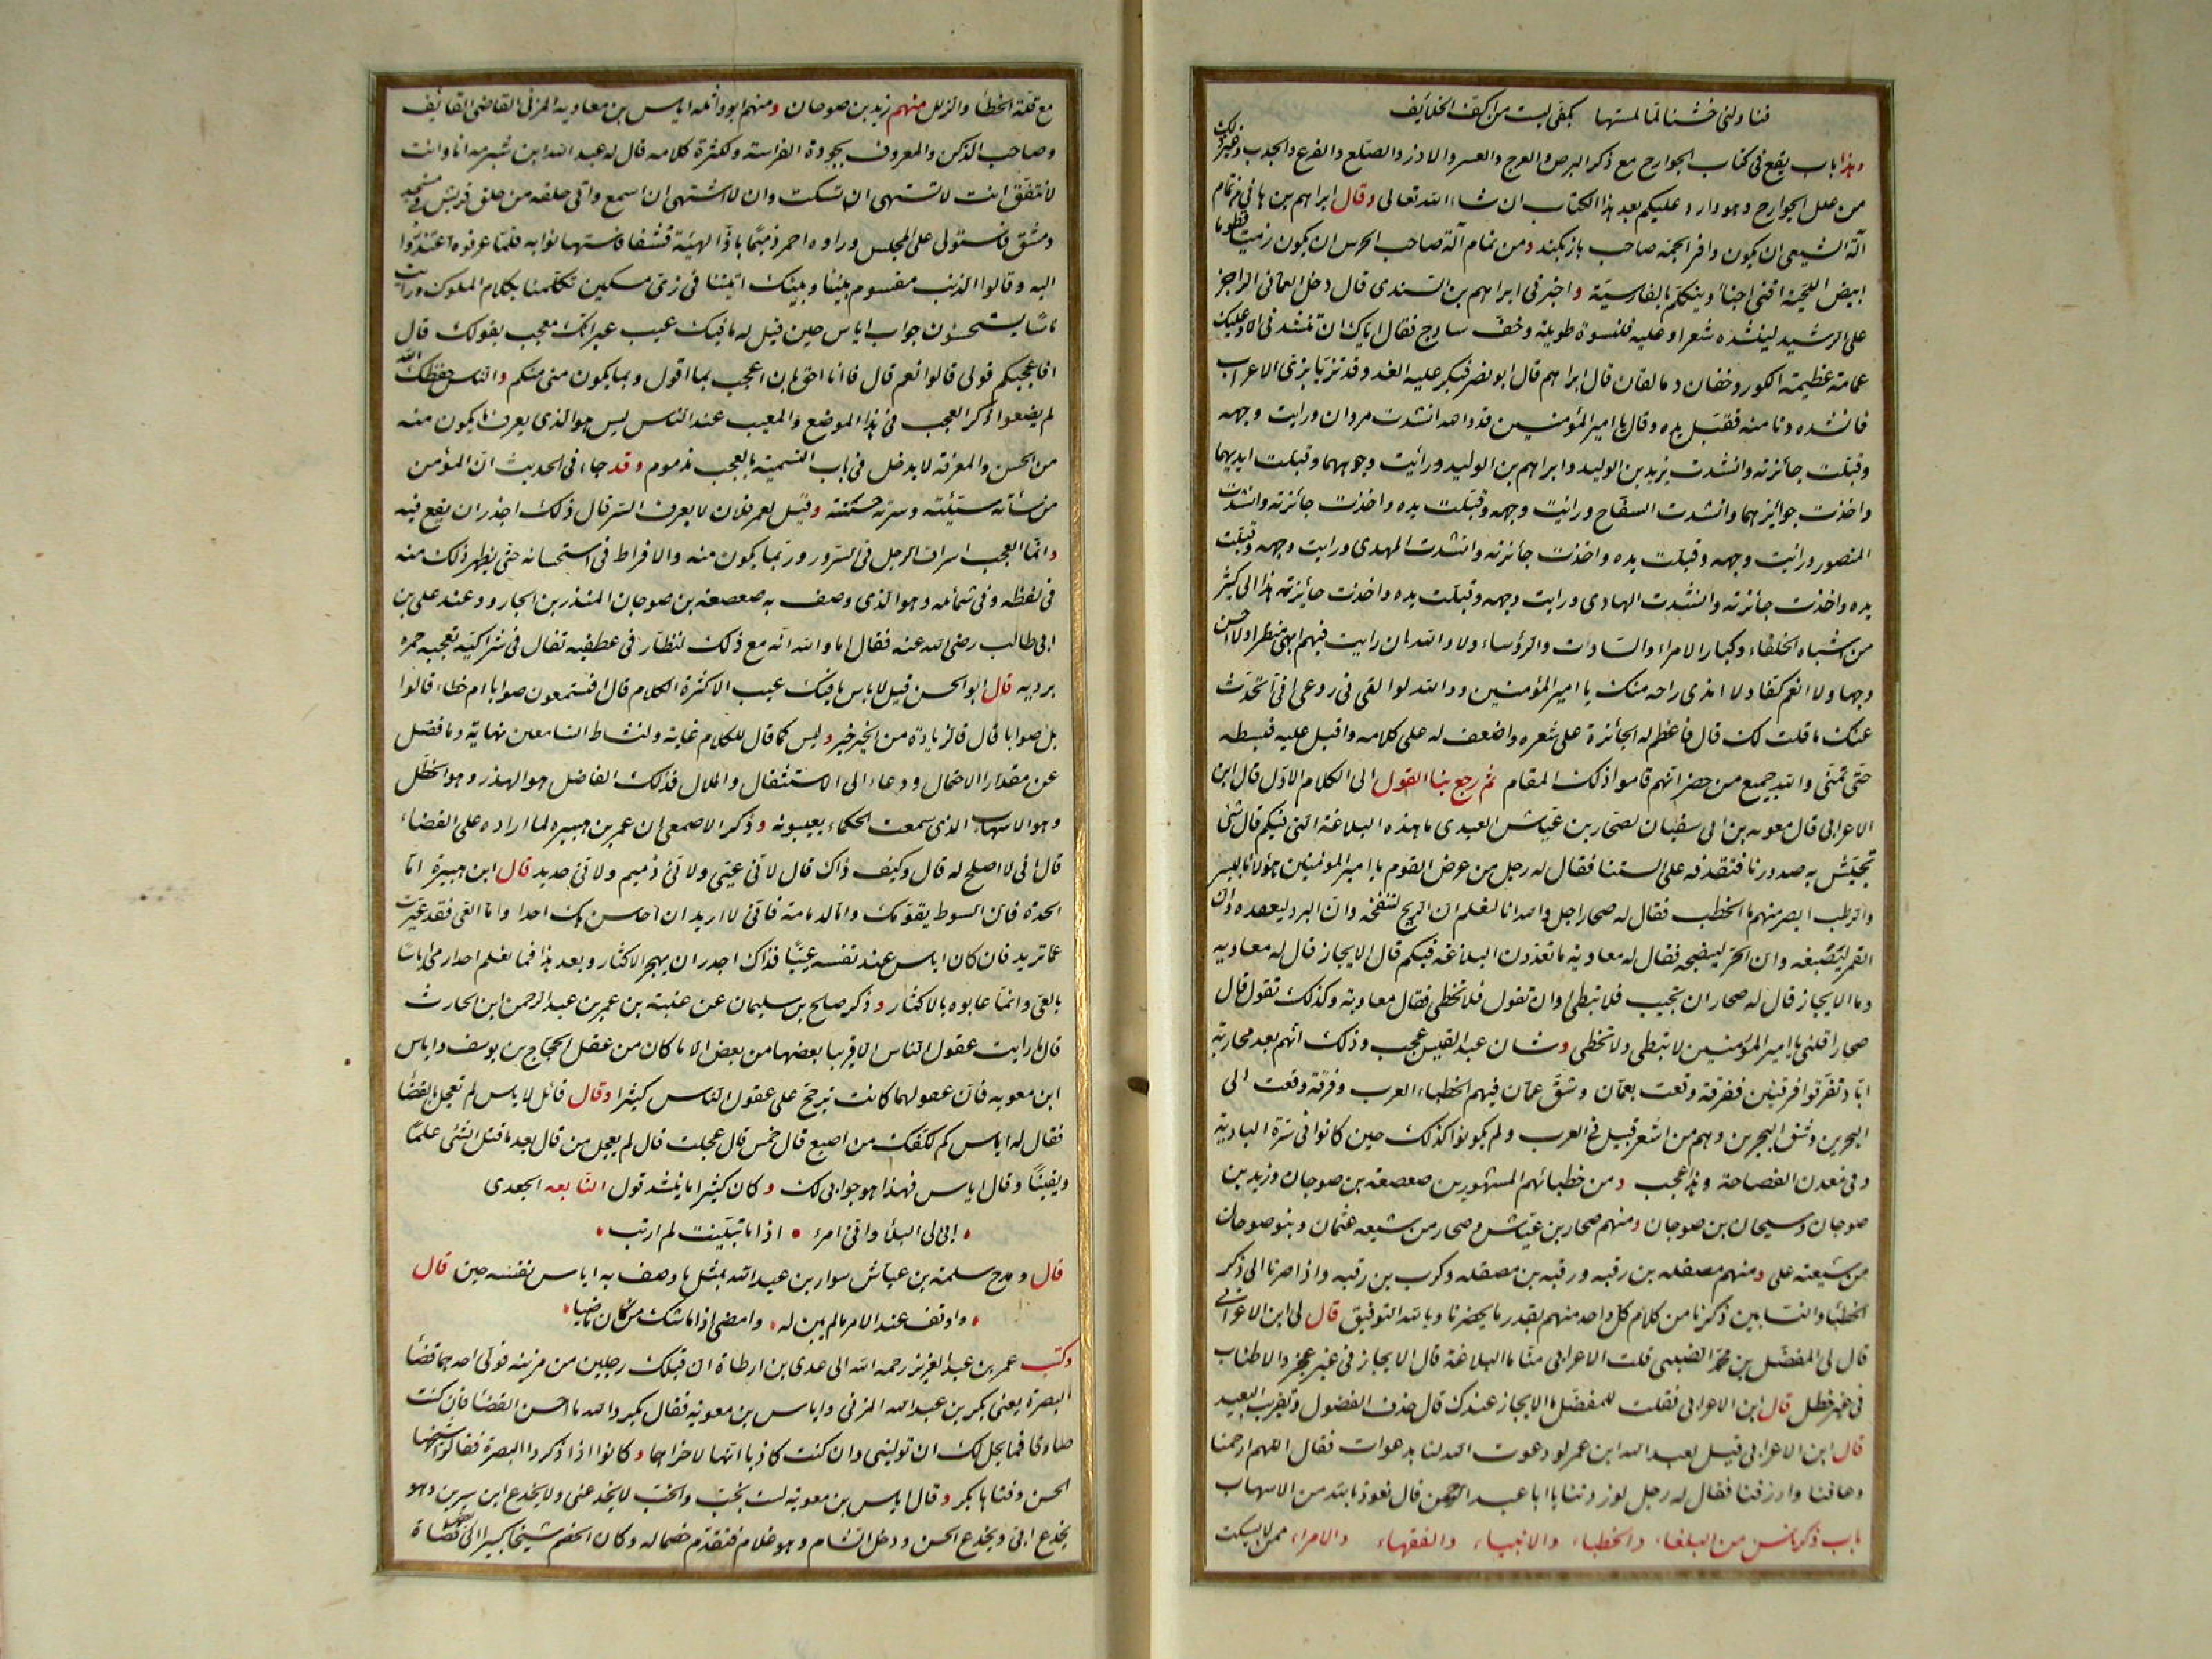 فناولنى خشنا لمّا لمستها بكفّى ليست من اكفّ الخلايف
وهذا باب يقع فى كتاب الجوارح مع ذكر البرص والعرج والعسر والادر والصلع والقرع والحدب وغير ذلك
من علل الجوارح وهو وارد عليكم بعد هذا الكتاب ان شاء الله تعالى وقال ابراهيم بن هانى من تمام
آلة الشيعى ان يكون وافر الجمّة صاحب بازيكند ومن تمام آلة صاحب الحرس ان يكون زميتا قطوبا
ابيض اللحية اقنى اجنأ ويتكلم بالفارسية واخبرنى ابراهيم بن السندى قال دخل العمانى الراجز
على الرشيد لينشده شعرا وعليه قلنسوة طويلة وخفّ ساذج فقال اياك ان تنشدنى الا وعليك
عمامة عظيمة الكور وخفان دمالقان قال ابراهيم قال ابو نصر فبكر عليه الغد وقد تزيّا بزىّ الاعراب
فانشده ودنا منه فقبّل يده وقال يا امير المؤمنين قد والله انشدت مروان ورايت وجهه
وقبلت جائزته وانشدت يزيد بن الوليد وابراهيم بن الوليد ورأيت وجوههما وقبلت ايديهما
واخذت جوائزهما وانشدت السفاح ورائيت وجهه وقبلت يده واخذت جائزته وانشدت
المنصور ورائيت وجهه وقبلت يده واخذت جائزته وانشدت المهدى ورايت وجهه وقبلت
يده واخذت جائزته وانشدت الهادى ورايت وجهه وقبلت يده واخذت جايزته هذا الى كثير
من اشباه الخلفاء وكبار الامراء والسادات والرؤساء ولا والله ان رايت فيهم ابهى منظرا ولا احسن
وجها ولا انعم كفّا ولا اندى راحه منك يا امير المؤمنين ووالله لو القى فى روعى انى اتحدّث
عنك ما قلت لك قال فاعظم له الجائزة على شعره واضعف له على كلامه واقبل عليه فبسطه
حتى تمنّى والله جميع من حضر انهم قاموا ذلك المقام ثم رجع بنا القول الى الكلام الاوّل قال ابن
الاعرابى قال معويه بن ابى سفيان لصحار بن عياش العبدى ما هذه البلاغة التى فيكم قال شئ
تجيش به صدورنا فتقذفه على السنتنا فقال له رجل من عرض القوم يا امير المؤمنين هؤلاء بالبسر
والرطب ابصر منهم بالخطب فقال له صحار اجل والله انا لنعلم ان الريح لتنفخه وان البرد ليعقده وان
القمر ليصبغه وان الحرّ لينضجه فقال له معاوية ما تعدّون البلاغة فيكم قال الايجاز قال له معاويه
وما الايجاز قال له صحار ان تجيب فلا تبطى وان تقول فلا تخطى فقال معاوية وكذلك تقول قال
صحار اقلنى يا امير المؤمنين لا تبطى ولا تخطى وشان عبد القيس عجب وذلك انهم بعد محاربة
اياد تفرقوا فرقتين ففرقة وقعت بعمّان وشق عمّان فيهم خطباء العرب وفرقة وقعت الى
البحرين وشق البحرين وهم من اشعر قبيل فى العرب ولم يكونوا كذلك حين كانوا فى سرّة البادية
وفى معدن الفصاحة وهذا عجب ومن خطبائهم المشهورين صعصعة بن صوحان وزيد بن
صوحان وسيحان بن صوحان ومنهم صحار بن عياش وصحار من شيعه عثمان وبنو صوحان
من شيعه على ومنهم مصقله بن رقبه ورقبه بن مصقله وكرب بن رقبه واذا صرنا الى ذكر
الخطباء والنسابين ذكرنا من كلام كل واحد منهم بقدر ما يحضرنا وبالله التوفيق قال لى ابن الاعرابى
قال لى المفضّل بن محمد الضبى قلت لاعرابى منّا ما البلاغة قال الايجاز فى غير عجز والاطناب
فى غير خطل قال ابن الاعرابى فقلت للمفضّل ما الايجاز عندك قال حذف الفضول وتقريب البعيد
قال ابن الاعرابى قيل لعبد الله ابن عمر لو دعوت الله لنا بدعوات فقال اللهم ارحمنا
وعافنا وارزقنا فقال له رجل لو زدتنا يا ابا عبد الرحمن قال نعوذ بالله من الاسهاب
باب ذكر ناس من البلغاء والخطباء والانبياء والفقهاء والامراء ممن لا يسكت
مع قلّة الخطأ والزلل منهم زيد بن صوحان ومنهم ابو واثله اياس بن معاويه المزنى القاضى القائف
وصاحب الزكن والمعروف بجودة الفراسة ولكثرة كلامه قال له عبد الله ابن شبرمه انا وانت
لا نتفق انت لا تشتهى ان تسكت وانا لا اشتهى ان اسمع واتى حلقه من حلق قريش فى مسجد
دمشق فاستولى على المجلس وراوه احمر دميما باذّ الهيئة قشفا فاستهانوا به فلمّا عرفوه اعتذروا
اليه وقالوا الذنب مقسوم بيننا وبينك اتيتنا فى زىّ مسكين تكلمنا بكلام الملوك ورأيت
ناسا يستحسنون جواب اياس حين قيل له ما فيك عيب غير انك معجب بقولك قال
افاعجبكم قولى قالوا نعم قال فانا احق بان اعجب بما اقول وبما يكون منى منكم والناس حفظك الله
لم يضعوا ذكر العجب فى هذا الموضع والمعيب عند الناس ليس هو الذى يعرف ما يكون منه
من الحسن والمعرفة لا يدخل فى باب التسمية بالعجب مذموم وقد جاء فى الحديث ان المؤمن
من سأته سيّئته وسرته حسنته وقيل لعمر فلان لا يعرف الشر قال ذلك اجدر ان يقع فيه
وانّما العجب اسراف الرجل فى السرور بما يكون منه والافراط فى استحسانه حتى يظهر ذلك منه
فى لفظه وفى شمائله وهو الذى وصف به صعصعه بن صوحان المنذر بن الجارود عند على بن
ابى طالب رضى الله عنه فقال اما والله انه مع ذلك لنظّار فى عطفيه تفال فى شراكيه تعجبه حمره
برديه قال ابو الحسن قيل لاياس ما فيك عيب الا كثرة الكلام قال افتسمعون صوابا ام خطاء قالوا
بل صوابا قال فالزيادة من الخير خير وليس كما قال للكلام غاية ولنشاط السامعين نهاية وما فضل
عن مقدار الاحتمال ودعاء الى الاستثقال والملال فذلك الفاضل هو الهذر وهو الخطل
وهو الاسهاب الذى سمعت الحكماء يعيبونه وذكر الاصمعى ان عمر بن هبيره لما اراده على القضاء
قال انى لا اصلح له قال وكيف ذاك قال لانى عيىّ ولانى دميم ولانى حديد قال ابن هبيرة امّا
الحدة فان السوط يقومك وامّا الدمامة فانى لا اريد ان احاسن بك احدا وامّا العىّ فقد عبّرت
عمّا تريد فان كان اياس عند نفسه عييّا فذاك اجدر ان يهجر الاكثار وبعد هذا فما نعلم احدا رمى اياسا
بالعىّ وانما عابوه بالاكثار وذكر صلح بن سليمان عن عتبة بن عمر بن عبد الرحمن ابن الحارث
قال ما رايت عقول الناس الا قريبا بعضها من بعض الا ما كان من عقل الحجاج بن يوسف واياس
ابن معويه فان عقولهما كانت ترجح على عقول الناس كثيرا وقال قائل لاياس لم تعجل بالقضاء
فقال له اياس كم لكفّك من اصبع قال خمس قال عجلت قال لم يعجل من قال بعد ما قتل الشئ علمًا
ويقينًا وقال اياس فهذا هو جوابى لك وكان كثيرا ما ينشد قول النابغه الجعدى
ابى لى البلاء وانى امرء اذا ما تبينت لم ارتب
قال ومدح سلمة بن عياش سوار بن عبد الله بمثل ما وصف به اياس نفسه حين قال
واوقف عند الامر ما لم يبن له وامضى اذا ما شك من كان ماضيا
وكتب عمر بن عبد العزيز رحمه الله الى عدى بن ارطاة ان قبلك رجلين من مزينه فولّ احدهما قضاء
البصرة يعنى بكر بن عبد الله المزنى واياس بن معوية فقال بكر والله ما احسن القضاء فان كنت
صادقا فما يحل لك ان تولينى وان كنت كاذبا انها لاحراها وكانوا اذا ذكروا البصرة فقالوا شيخها
الحسن وفتاها بكر وقال اياس بن معوية لست بخبّ والخبّ لا يخدعنى ولا يخدع ابن سيرين وهو
يخدع ابى ويخدع الحسن ودخل الشام وهو غلام فتقدّم خصما له وكان الخصم شيخا كبيرا الى بعض قضاة